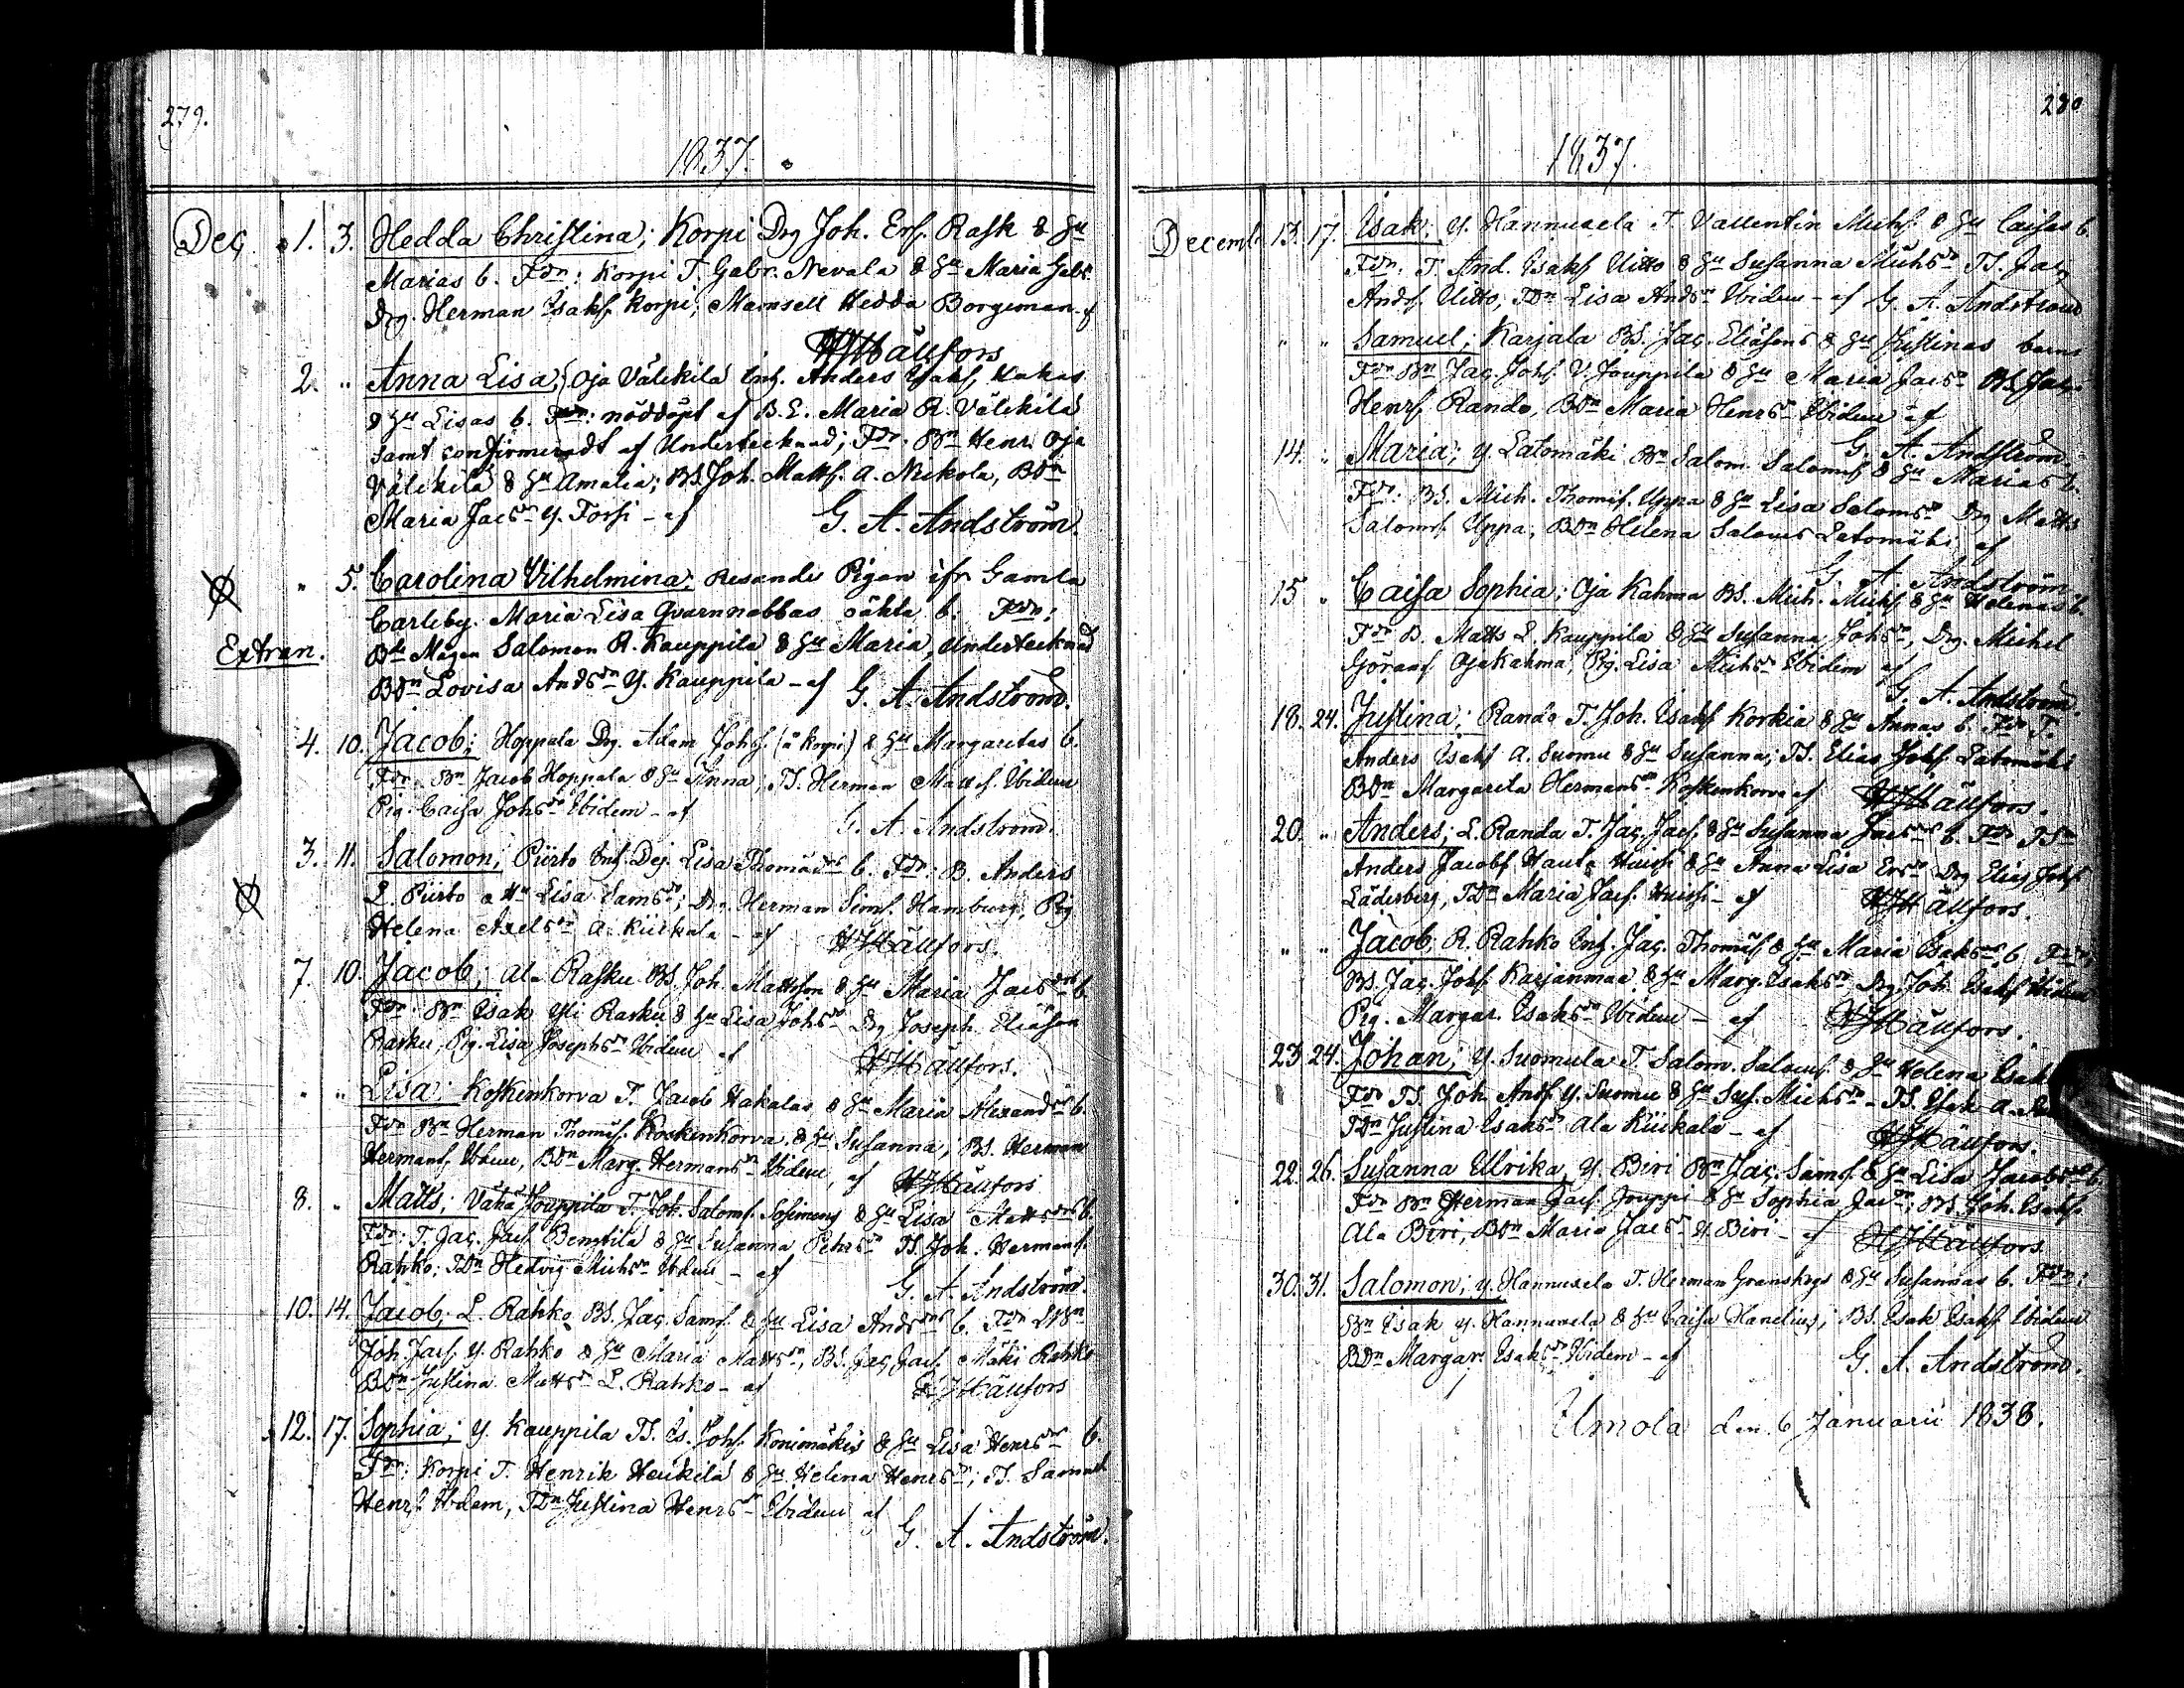 279.
1837.
Dec. 1. 3. Hedda Christina; Korpi Drg Joh. Ers. Rask & Hu
Marias b. Fdr: Korpi T. Gabr. Nevala & Hu Maria Gabr.
Drg. Herman Isaks. Korpi; Mamsell Hedda Borgeman af
HHällfors
2. " Anna Lisa; Oja Välikilä Inh. Anders Isaks. Kakas
& Hu Lisas b. Fdr: nöddöpt af B. E. Maria R. Välikilä
samt confirmeradt af Undertecknad; Fdr. Bn Henr. Oja
Välikilä & Hu Amalia; BS. Joh. Matts. A. Nickola, BDn
Maria Jacsdr Y. Forsi - af G. A. Andström.
" 5. Carolina Vilhelmina; Resande Pigan ifr Gamla
Carleby Maria Lisa Qvarnnabbas oäkta b. Fdr:
Extran. Bde Mågen Salomon R. Kauppila & Hu Maria, Undertecknad
BDn Lovisa Andsdr Y. Kauppila - af G. A. Andström.
4. 10. Jacob; Hoppala Drg. Adam Johs. (å Korpi) & Hu Margaretas b.
Fdr: Bn Jacob Hoppala & Hu Anna; TS. Herman Matts. Ibidem
Pig. Caisa Johsdr Ibidem - af G. A. Andström.
3. 11. Salomon; Piirto Inh. Dej. Lisa Thomädrs b. Fdr: B. Anders
L. Piirto & Hu Lisa Samsdr; Drg. Herman Sims. Hamburg, Pig
Helena Axelsdr A. Kiikala - af HHällfors.
7. 10. Jacob; Ala Rasku BS. Joh. Mattsson & Hu Maria Jacsdrs b.
Fdr: Bn Isak Yli Rasku & Hu Lisa Johsdr Drg Joseph Eliäsen
Rasku, Pig. Lisa Josephsdr Ibidem af HHällfors.
" " Lisa; Koskenkorva T. Jacob Hakalas & Hu Maria Alexandsdrs b.
Fdr Bn Herman Thomäs. Koskenkorva & Hu Susanna; BS. Herman
Hermans. Ibidem, BDn Marg. Hermansdr Ibidem, af HHällfors
8. " Matts; Vähä Jouppila T. Joh. Saloms. & Hu Lisa Mattsdrs b.
Fdr: T. Jac. Jacs. Benttilä & Hu Susanna Pehrsdr TS. Joh. Hermans.
Rahko; TDn Hedvig Michsdr Ibidem - af G. A. Andström.
10. 14. Jacob; L. Rahko BS. Jac. Sams. & Hu Lisa Andsdrs b. Fdr Bn
Joh. Jacs. Y. Rahko & Hu Maria Mattsdr; BS. Jac. Jacs. Mäki Rahko
BDn Justina Mattsdr L. Rahko - af HHällfors
12. 17. Sophia; Y. Kauppila TS. Is. Johs. Konimäkis & Hu Lisa Henrsdrs b.
Fdr: Korpi T. Henrik Heikilä & Hu Helena Henrsdr; TS. Samuel
Henrs. Ibidem, TDn Justina Henrsdr Ibidem af
G. A. Andström.
280
1837.
Decemb. 13. 17. Isak; Y. Hannuxela T. Vallentin Michs. & Hu Caisas b.
Fdr: T. And. Isaks. Uitto & Hu Susanna Michsdr TS. Jac.
Ands. Uitto, TDn Lisa Andsdr Ibidem - af G. A. Andström
" " Samuel; Karjala BS. Jac. Eliäsens & Hu Justinas barn
Fdr Bn Jac. Johs. V. Jouppila & Hu Maria Jacsdr BS. Jac.
Henrs. Rando, BDn Maria Henrsdr Ibidem af
G. A. Andström.
14. " Maria; Y. Latomäki Bn Salom. Saloms. & Hu Marias b.
Fdr: BS. Mich. Thomäs. Uppa & Hu Lisa Salomsdr Drg Matts
Saloms. Uppa; BDn Helena Saloms Latomäki af
G. A. Andström
15 " Caisa Sophia; Oja Kahma BS. Mich. Michs. & Hu Helenas b.
Fdr B. Matts L. Kauppila & Hu Susanna Johsdr, Drg. Michel
Görans. Ojakahma, Pig. Lisa Michsdr Ibidem af
G. A. Andström.
18. 24. Justina; Rando T. Joh. Isaks. Korkia & Hu Annas b. Fdr T.
Anders Isaks. A. Suomu & Hu Susanna; TS. Elias Johs. Latomäki
BDn Margareta Hermansdr Koskenkorva af HHällfors.
20. " Anders; L. Randa T. Jac. Jacs. & Hu Susanna Jacsdrs b. Fdr
Anders Jacobs. Huissi & Hu Anna Lisa Ersdr Drg Elias Johs.
Läderberg, TDn Maria Jacs. Huissi - af HHällfors.
" " Jacob; R. Rahko Inh. Jac. Thomäs. & Hu Maria Isaksdrs b. Fdr
BS. Jac. Johs. Karjanmaa & Hu Marg. Isaksdr Drg. Joh. Isaks. Ibidem
Pig. Margar. Isaksdr Ibidem - af HHällfors.
23. 24. Johan; Y. Suomula T. Salom. Saloms. & Hu Helena Isak
Fdr TS. Joh. Ands. Y. Suomu & Hu Sus. Michsdr - TS. Isak A.
TDn Justina Isaksdr Ala Kiikala - af HHällfors.
22. 26. Susanna Ulrika; Y. Biri Bn Jac. Sams. & Hu Lisa Jacobsdrs b.
Fdr Bn Herman Jacs. Jouppi & Hu Sophia Jacdr; BS. Joh. Isaks.
Ala Biri, BDn Maria Jacsdr Y. Biri - af HHällfors
30. 31. Salomon; Y. Hannuxela T. Herman Granskogs & Hu Susannas b. Fdr:
Bn Isak Y. Hannuxela & Hu Caisa Hanelius; BS. Isak Isaks. Ibidem
BDn Margar. Isaksdr Ibidem - af G. A. Andström.
Ilmola den 6 Januarii 1838.